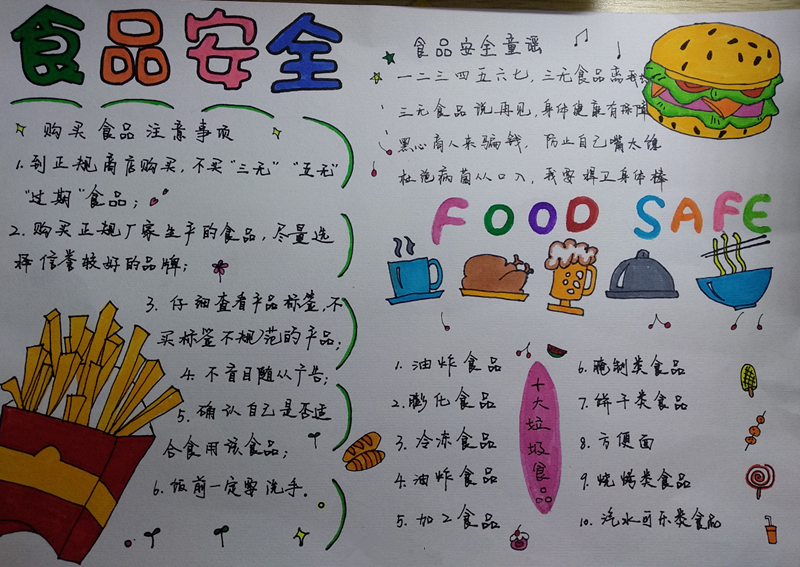 食品安全
购买食品注意事项
1.到正规商店购买，不买"三无""五无"
"过期"食品；
2.购买正规厂家生产的食品，尽量选
择信誉较好的品牌；
3.仔细查看产品标签，不
买标签不规范的产品；
4.不盲目随从广告；
5.确认自己是否适
合食用该食品；
6.饭前一定要洗手。
食品安全童谣
一二三四五六七，三无食品离我
三无食品说再见，身体健康有保障
黑心商人来骗钱，防止自己嘴太馋
杜绝病菌从口入，我要捍卫身体棒
FOOD SAFE
十大垃圾食品
1.油炸食品
2.膨化食品
3.冷冻食品
4.油炸食品
5.加工食品
6.腌制类食品
7.饼干类食品
8.方便面
9.烧烤类食品
10.汽水可乐类食品